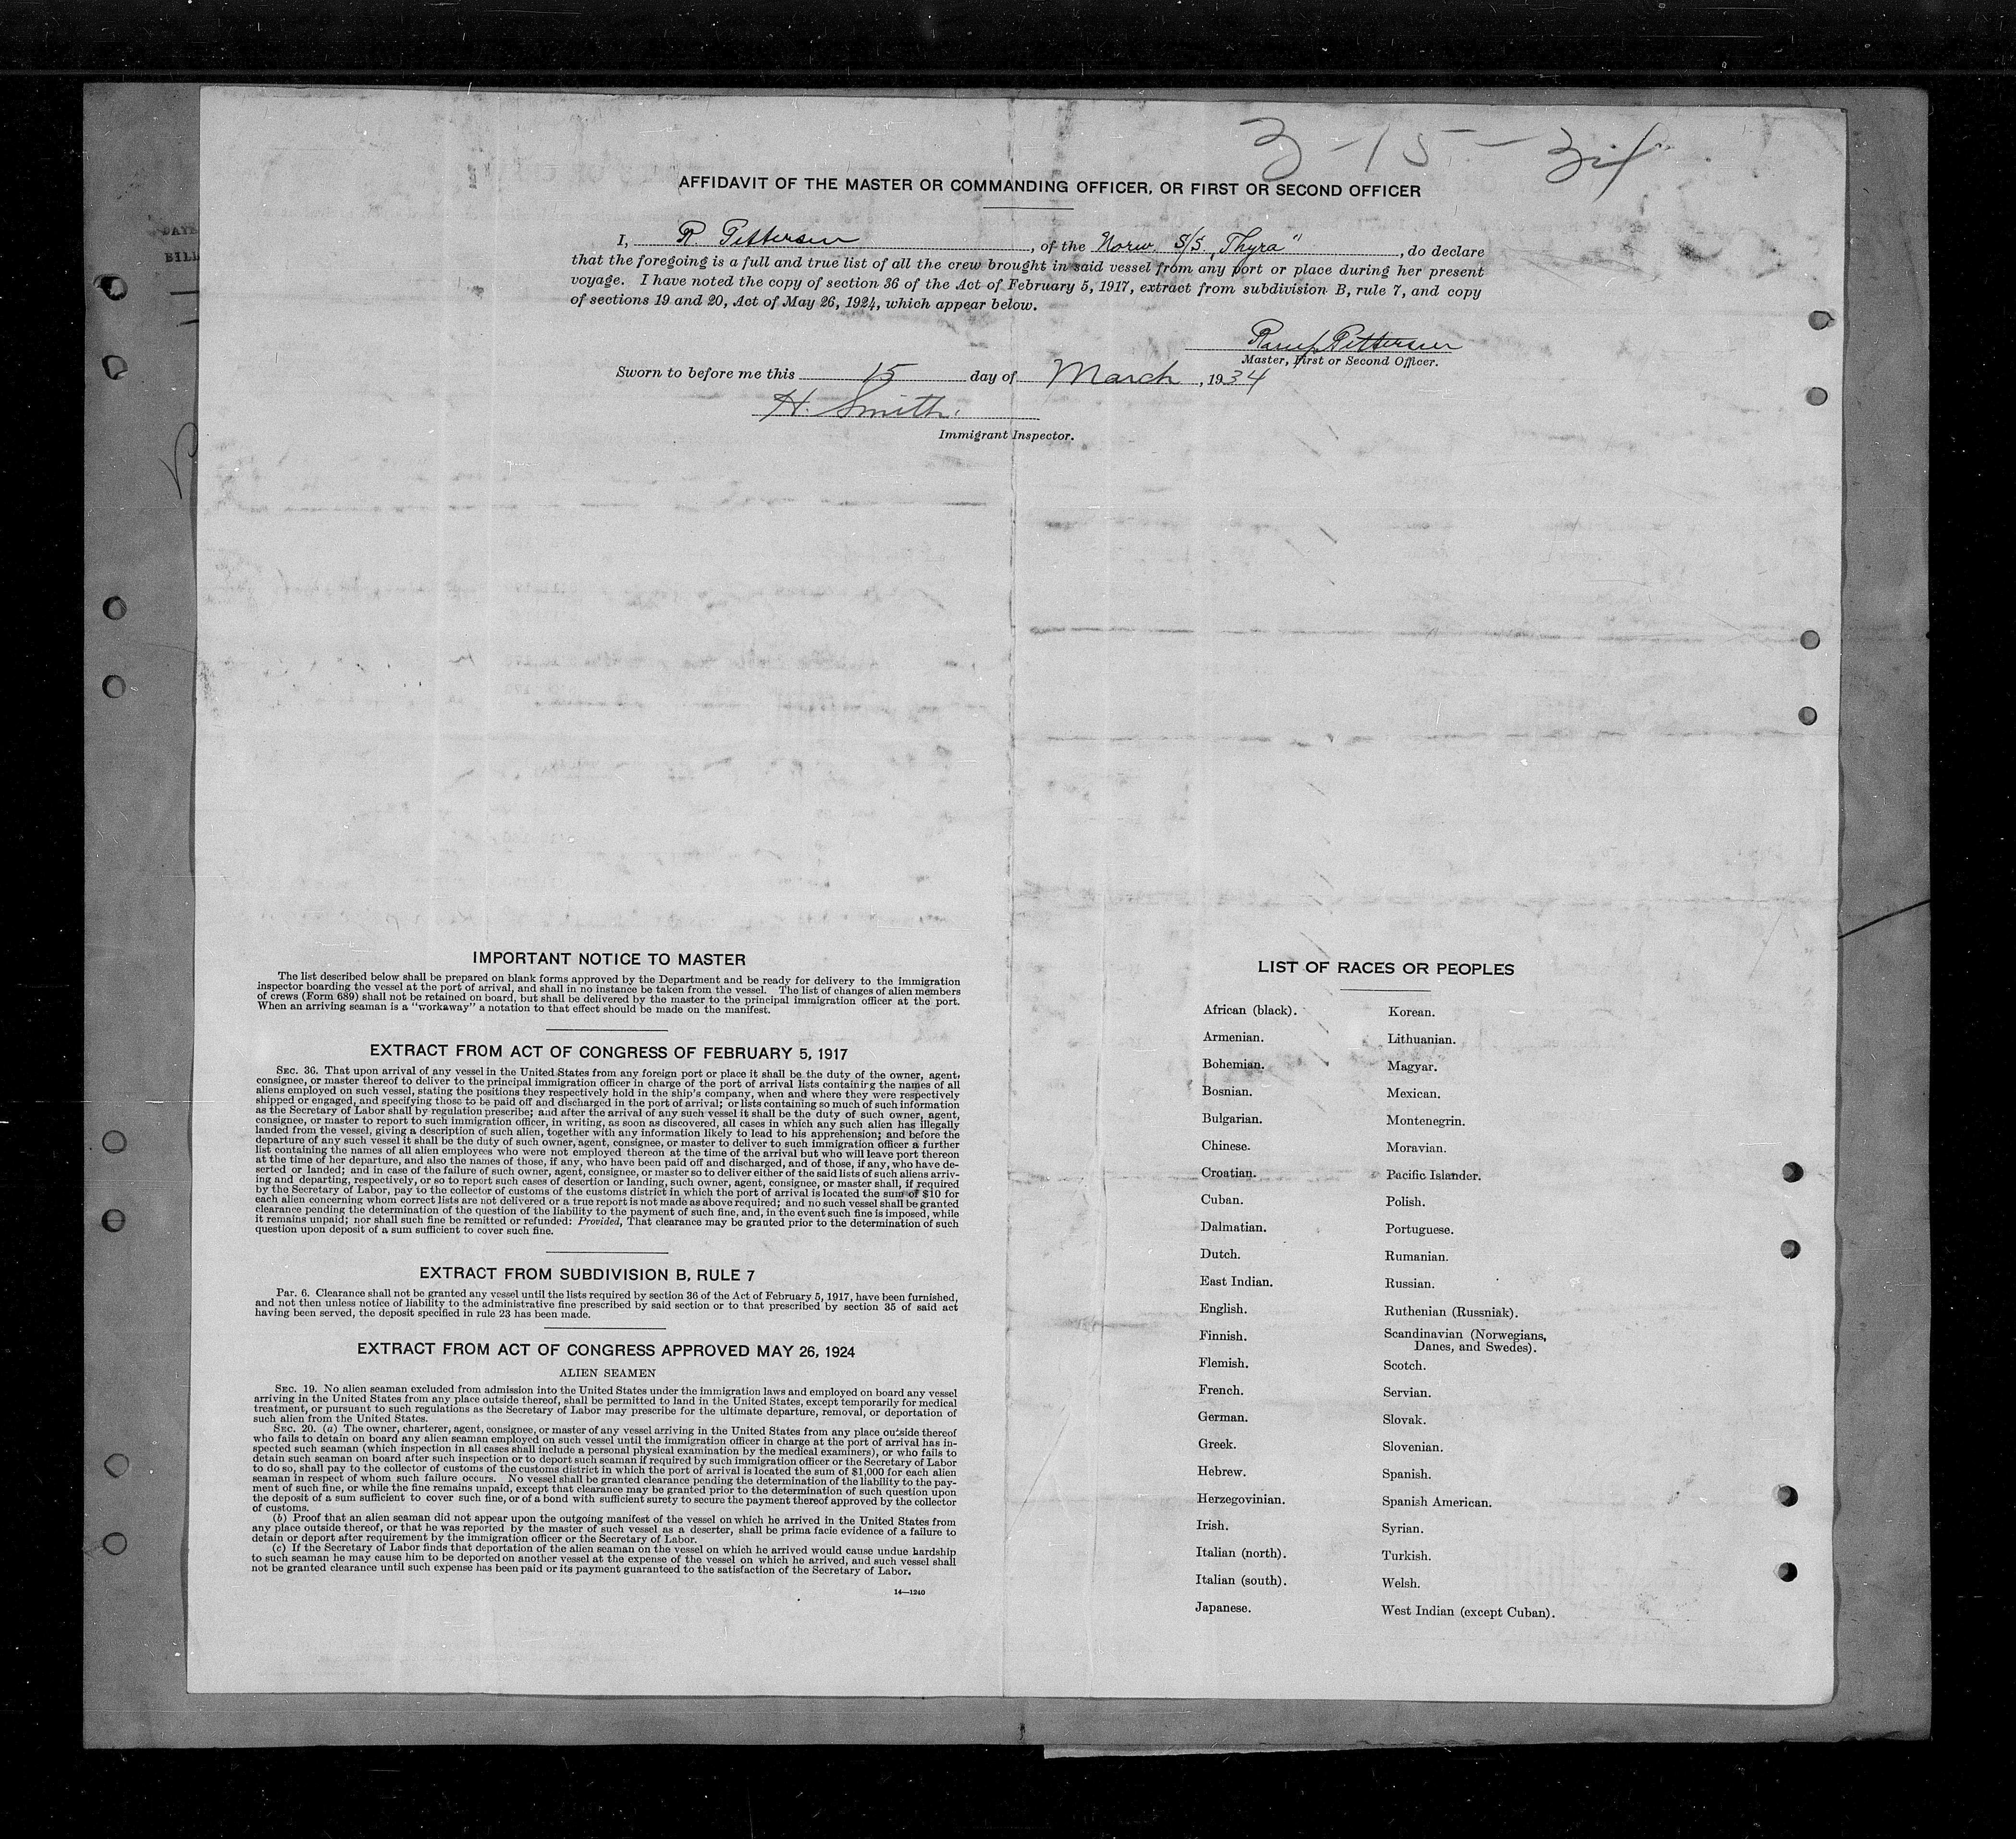 3-15-34
AFFIDAVIT OF THE MASTER OR COMMANDING OFFICER, OR FIRST OR SECOND OFFICER
I, R. Pettersen, of the Norw. S/S. „Thyra", do declare
that the foregoing is a full and true list of all the crew brought in said vessel from any port or place during her present
voyage. I have noted the copy of section 36 of the Act of February 5, 1917, extract from subdivision B, rule 7, and copy
of sections 19 and 20, Act of May 26, 1924, which appear below.
Pettersen
Master, First or Second Officer.
Sworn to before me this 15 day of March, 1934
H. Smith.
Immigrant Inspector.
IMPORTANT NOTICE TO MASTER
The list described below shall be prepared on blank forms approved by the Department and be ready for delivery to the immigration
inspector boarding the vessel at the port of arrival, and shall in no instance be taken from the vessel. The list of changes of alien members
of crews (Form 689) shall not be retained on board, but shall be delivered by the master to the principal immigration officer at the port.
When an arriving seaman is a "workaway" a notation to that effect should be made on the manifest.
EXTRACT FROM ACT OF CONGRESS OF FEBRUARY 5, 1917
SEC. 36. That upon arrival of any vessel in the United States from any foreign port or place it shall be the duty of the owner, agent,
consignee, or master thereof to deliver to the principal immigration officer in charge of the port of arrival lists containing the names of all
aliens employed on such vessel, stating the positions they respectively hold in the ship's company, when and where they were respectively
shipped or engaged, and specifying those to be paid off and discharged in the port of arrival; or lists containing so much of such information
as the Secretary of Labor shall by regulation prescribe; and after the arrival of any such vessel it shall be the duty of such owner, agent,
consignee, or master to report to such immigration officer, in writing, as soon as discovered, all cases in which any such alien has illegally
landed from the vessel, giving a description of such alien, together with any information likely to lead to his apprehension; and before the
departure of any such vessel it shall be the duty of such owner, agent, consignee, or master to deliver to such immigration officer a further
list containing the names of all alien employees who were not employed thereon at the time of the arrival but who will leave port thereon
at the time of her departure, and also the names of those, if any, who have been paid off and discharged, and of those, if any, who have de-
serted or landed; and in case of the failure of such owner, agent, consignee, or master so to deliver either of the said lists of such aliens arriv-
ing and departing, respectively, or so to report such cases of desertion or landing, such owner, agent, consignee, or master shall, if required
by the Secretary of Labor, pay to the collector of customs of the customs district in which the port of arrival is located the sum of $10 for
each alien concerning whom correct lists are not delivered or a true report is not made as above required; and no such vessel shall be granted
clearance pending the determination of the question of the liability to the payment of such fine, and, in the event such fine is imposed, while
it remains unpaid; nor shall such fine be remitted or refunded: Provided, That clearance may be granted prior to the determination of such
question upon deposit of a sum sufficient to cover such fine.
EXTRACT FROM SUBDIVISION B, RULE 7
Par. 6. Clearance shall not be granted any vessel until the lists required by section 36 of the Act of February 5, 1917, have been furnished,
and not then unless notice of liability to the administrative fine prescribed by said section or to that prescribed by section 35 of said act
having been served, the deposit specified in rule 23 has been made.
EXTRACT FROM ACT OF CONGRESS APPROVED MAY 26, 1924
ALIEN SEAMEN
SEC. 19. No alien seaman excluded from admission into the United States under the immigration laws and employed on board any vessel
arriving in the United States from any place outside thereof, shall be permitted to land in the United States, except temporarily for medical
treatment, or pursuant to such regulations as the Secretary of Labor may prescribe for the ultimate departure, removal, or deportation of
such alien from the United States.
SEC. 20. (a) The owner, charterer, agent, consignee, or master of any vessel arriving in the United States from any place outside thereof
who fails to detain on board any alien seaman employed on such vessel until the immigration officer in charge at the port of arrival has in-
spected such seaman (which inspection in all cases shall include a personal physical examination by the medical examiners), or who fails to
detain such seaman on board after such inspection or to deport such seaman if required by such immigration officer or the Secretary of Labor
to do so, shall pay to the collector of customs of the customs district in which the port of arrival is located the sum of $1,000 for each alien
seaman in respect of whom such failure occurs. No vessel shall be granted clearance pending the determination of the liability to the pay-
ment of such fine, or while the fine remains unpaid, except that clearance may be granted prior to the determination of such question upon
the deposit of a sum sufficient to cover such fine, or of a bond with sufficient surety to secure the payment thereof approved by the collector
of customs.
(b) Proof that an alien seaman did not appear upon the outgoing manifest of the vessel on which he arrived in the United States from
any place outside thereof, or that he was reported by the master of such vessel as a deserter, shall be prima facie evidence of a failure to
detain or deport after requirement by the immigration officer or the Secretary of Labor.
(c) If the Secretary of Labor finds that deportation of the alien seaman on the vessel on which he arrived would cause undue hardship
to such seaman he may cause him to be deported on another vessel at the expense of the vessel on which he arrived, and such vessel shall
not be granted clearance until such expense has been paid or its payment guaranteed to the satisfaction of the Secretary of Labor.
14—1240
LIST OF RACES OR PEOPLES
African (black).
Armenian.
Bohemian.
Bosnian.
Bulgarian.
Chinese.
Croatian.
Cuban.
Dalmatian.
Dutch.
East Indian.
English.
Finnish.
Flemish.
French.
German.
Greek.
Hebrew.
Herzegovinian.
Irish.
Italian (north).
Italian (south).
Japanese.
Korean.
Lithuanian.
Magyar.
Mexican.
Montenegrin.
Moravian.
Pacific Islander.
Polish.
Portuguese.
Rumanian.
Russian.
Ruthenian (Russniak).
Scandinavian (Norwegians,
Danes, and Swedes).
Scotch.
Servian.
Slovak.
Slovenian.
Spanish.
Spanish American.
Syrian.
Turkish.
Welsh.
West Indian (except Cuban).